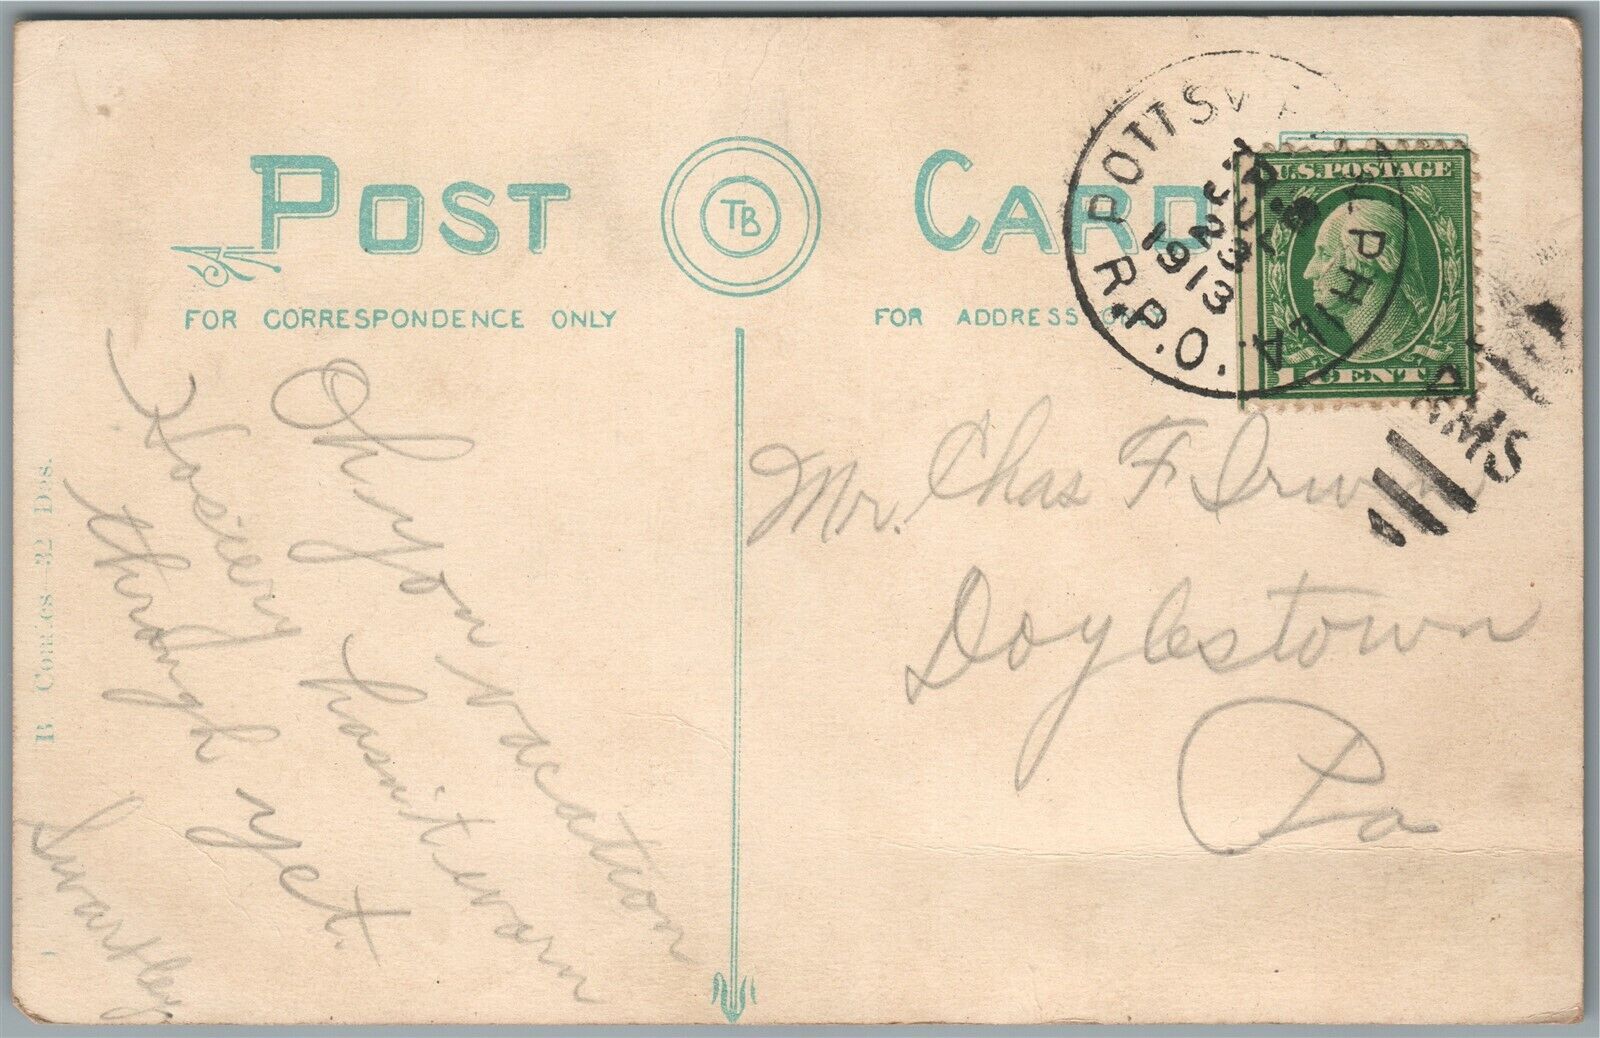 POST CARD
TB
FOR CORRESPONDENCE ONLY
FOR ADDRESS ONLY
POTTSV PHILA.
R.P.O.
1913
U.S. POSTAGE
1 CENT
RMS
Oh you vacation
Hosiery hasn't worn
through yet.
Swartley
Mr. Chas F Irwin
Doylestown
Pa
32 Des.